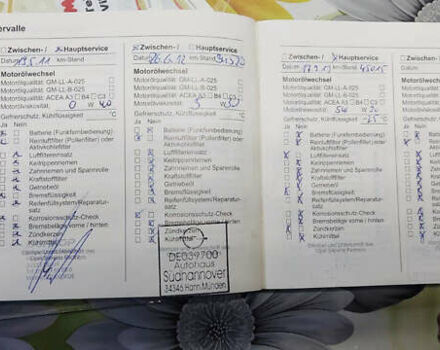 ervalle
Zwischen-/ Hauptservice
Datum km-Stand
Motorölwechsel
Motorölqualität: GM-LL-A-025
Motorölqualität: GM-LL-B-025
Motorölqualität: ACEA A3 B4 C3
Motorölviskosität 0 W 40
Gefrierschutz, Kühlflüssigkeit °C
Ja Nein
Batterie (Funkfernbedienung)
Reinluftfilter (Pollenfilter) oder
Aktivkohlefilter
Luftfiltereinsatz
Keilrippenriemen
Zahnriemen und Spannrolle
Kraftstofffilter
Getriebeöl
Bremsflüssigkeit
Reifenfüllsystem/Reparatur-
satz
Korrosionsschutz-Check
Bremsbeläge vorne / hinten
Zündkerzen
Kühlmittel
Zwischen-/ Hauptservice
Datum 26.6.12 km-Stand
Motorölwechsel
Motorölqualität: GM-LL-A-025
Motorölqualität: GM-LL-B-025
Motorölqualität: ACEA A3 B4 C3
Motorölviskosität 5 W
Gefrierschutz, Kühlflüssigkeit °C
Ja Nein
Batterie (Funkfernbedienung)
Reinluftfilter (Pollenfilter) oder
Aktivkohlefilter
Luftfiltereinsatz
Keilrippenriemen
Zahnriemen und Spannrolle
Kraftstofffilter
Getriebeöl
Bremsflüssigkeit
Reifenfüllsystem/Reparatur-
satz
Korrosionsschutz-Check
Bremsbeläge vorne / hinten
Zündkerzen
Kühlmittel
DE039700
Autohaus
Südhannover
34346 Hann.Münden
Zwischen-/ Hauptservice
Datum km-Stand 45015
Motorölwechsel
Motorölqualität: GM-LL-A-025
Motorölqualität: GM-LL-B-025
Motorölqualität: ACEA A3 B4 C3
Motorölviskosität W 30
Gefrierschutz, Kühlflüssigkeit °C
Ja Nein
Batterie (Funkfernbedienung)
Reinluftfilter (Pollenfilter) oder
Aktivkohlefilter
Luftfiltereinsatz
Keilrippenriemen
Zahnriemen und Spannrolle
Kraftstofffilter
Getriebeöl
Bremsflüssigkeit
Reifenfüllsystem/Reparatur-
satz
Korrosionsschutz-Check
Bremsbeläge vorne / hinten
Zündkerzen
Kühlmittel
Stempel und Unterschrift des
Opel Service Partners
Zwisc
Datum
Motoröl
Motorölqua
Motorölqua
Motorölqua
Ja Nein